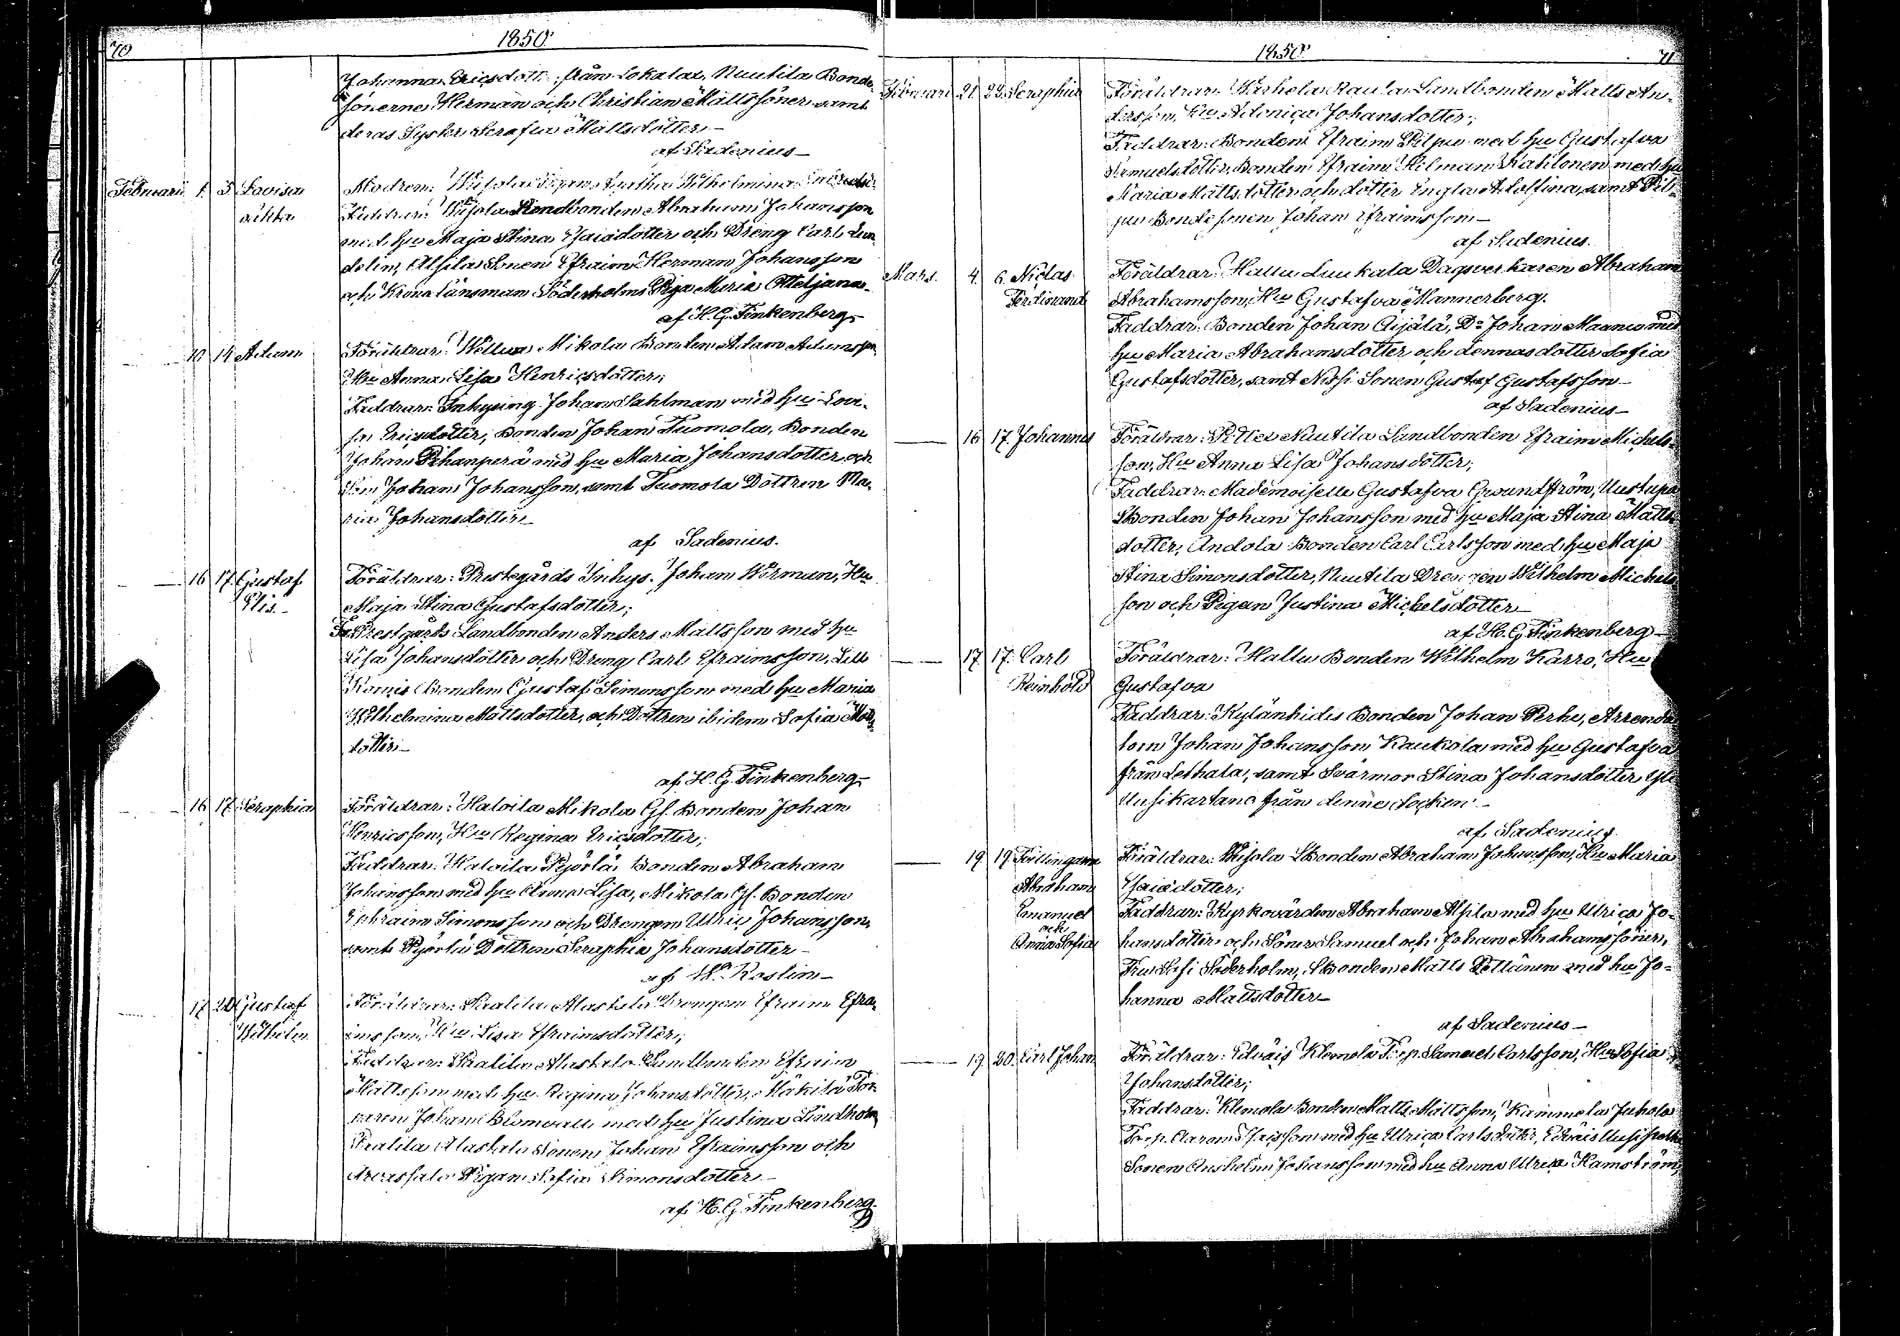 70
1850.
Johanna Ericsdotter, från Lokalax, Nuutila Bonde
sönerne Herman och Christian Mattssöner samt
deras Syster Serafia Mattsdotter
af Sadenius
Februarii 1. 3. Lovisa Modren: Pigan Agatha Wilhelmina
oäkta Faddrar: Bonden Abraham Johansson
med hu Maja Stina Esaiædotter och Dreng Carl Lun
delin, Alsila Sonen Efraim Herman Johansson
och Krono länsman Söderholms Piga Maria Ottiljana
af H. G. Finkenberg
10 14 Adam Föräldrar: Mikola Bonden Adam Adamsson
Hu Anna Lisa Henricsdotter;
Faddrar: Inhysing Johan Sahlman med hu Lovi-
sa Ericsdotter, Bonden Johan Tuomola, Bonden
Johan Pihanperä med hu Maria Johansdotter och
Son Johan Johansson, samt Tuomola Dottren Ma-
ria Johansdotter
af Sadenius.
16 17 Gustaf Föräldrar: Prestegårds Inhys. Johan Werman, Hu
Elis Maja Stina Gustafsdotter;
Fr. Prestgårds Landbonden Anders Mattsson med hu
Lisa Johansdotter och Dreng Carl Efraimsson, Lill
Komis Bonden Gustaf Simonsson med hu Maria
Wilhelmina Mattsdotter, och Dottren ibidem Sofia
dotter
af H. G. Finkenberg
16 17 Seraphia Föräldrar: Haloila Mikola Gl. Bonden Johan
Henricsson, Hu Regina Ericsdotter;
Faddrar: Haloila Pyörlä Bonden Abraham
Johansson med hu Anna Lisa, Mikola Gl. Bonden
Ephraim Simonsson och Drengen Ulric Johansson
samt Pyörlä Dottren Seraphia Johansdotter
af W. Roslin
17 20 Gustaf Föräldrar: Alastalo Drengen Efraim Efra-
Wilhelm imsson, Hu Lisa Efraimsdotter;
Faddrar: Alastalo Landbonden Efraim
Mattsson med hu Regina Johansdotter, Mäkilä Tor-
paren Johan Blomvall med hu Justina Lindholm
Alastalo Sonen Johan Efraimsson och
Pigan Sofia Simonsdotter
af H. G. Finkenberg
1850.
71
Februarii 21 22. Seraphia Föräldrar: Rautia Landbonden Matts An-
dersson, Hu Adonica Johansdotter;
Faddrar: Bonden Efraim Pilpu med hu Gustafva
Samuelsdotter, Bonden Efraim med hu
Maria Mattsdotter och dotter Engla Adolfina, samt Pil-
pu Bonde sonen Johan Efraimsson
af Sadenius.
Mars. 4. 6. Niclas Föräldrar: Hallu Luukala Dagsverkaren Abraham
Ferdinand Abrahamsson, Hu Gustafva Mannerberg.
Faddrar: Bonden Johan Äijälä, Do Johan Maunu med
hu Maria Abrahamsdotter och dennas dotter Sofia
Gustafsdotter, samt Nissi Sonen Gustaf Gustafsson
af Sadenius
16 17. Johannes Föräldrar: Nuutila Landbonden Efraim Michels-
son, Hu Anna Lisa Johansdotter;
Faddrar: Mademoiselle Gustafva Grundström, Uustupa
Bonden Johan Johansson med hu Maja Stina Matts-
dotter, Andola Bonden Carl Carlsson med hu Maja
Stina Simonsdotter, Nuutila Drengen Wilhelm Michels
son och Pigan Justina Michelsdotter
af H. G. Finkenberg
17 17. Carl Föräldrar: Hallu Bonden Wilhelm Karro, Hu
Reinhold Gustafva
Faddrar: Kylänhidis Bonden Johan Perhe, Arrenda
torn Johan Johansson Kaukola med hu Gustafva
från Lethala, samt Svärmor Stina Johansdotter Yli
Uusikartano från denne socken.
af Sadenius.
19 19 Tvillingarne Föräldrar: Bonden Abraham Johansson, Hu Maria
Abraham Esaiædotter;
Emanuel Faddrar: Kyrkovärden Abraham Alsila med hu Ulrica Jo-
och
Anna Sofia hansdotter och Söner Samuel och Johan Abrahamssöner,
Fru Söderholm, Bonden Matts med hu Jo-
hanna Mattsdotter
af Sadenius
19 20. Carl Johan Föräldrar: Edväis Klemola Torp. Samuel Carlsson, Hu Sofia
Johansdotter;
Faddrar: Klemola Bonden Matts Mattsson, Kammela Juhola
Torp. Aaron med hu Ulrica Carlsdotter, Edväis
Sonen Anshelm Johansson med hu Anna Ulrica Hamström,